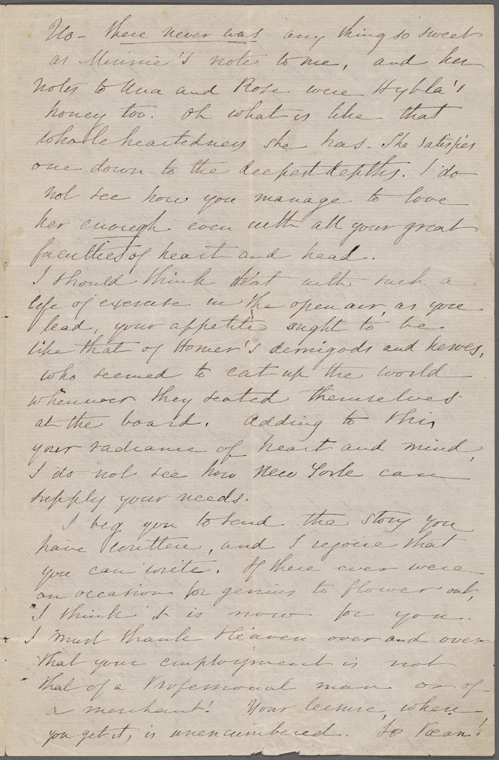 No - there never was any thing so sweet
as Minnie's note to me, and her
notes to Una and Rose were Hybla's
honey too. Oh what is like that
whole heartedness she has. She satisfies
one down to the deepest depths. I do
not see how you manage to love
her enough even with all your great
faculties of heart and head.
I should think that with such a
life of exercise in the open air, as you
lead, your appetite ought to be
like that of Homer's demigods and heroes,
who seemed to eat up the world
whenever they seated themselves
at the board. Adding to this
your radiance of heart and mind,
I do not see how New York can
supply your needs.
I beg you to send the story you
have written, and I rejoice that
you can write. If there ever were
an occasion for genius to flower out,
I think it is now for you.
I must thank Heaven over and over
that your employment is not
that of a Professional man or of
a merchant! Your leisure, when
you get it, is unencumbered. Io Paean!